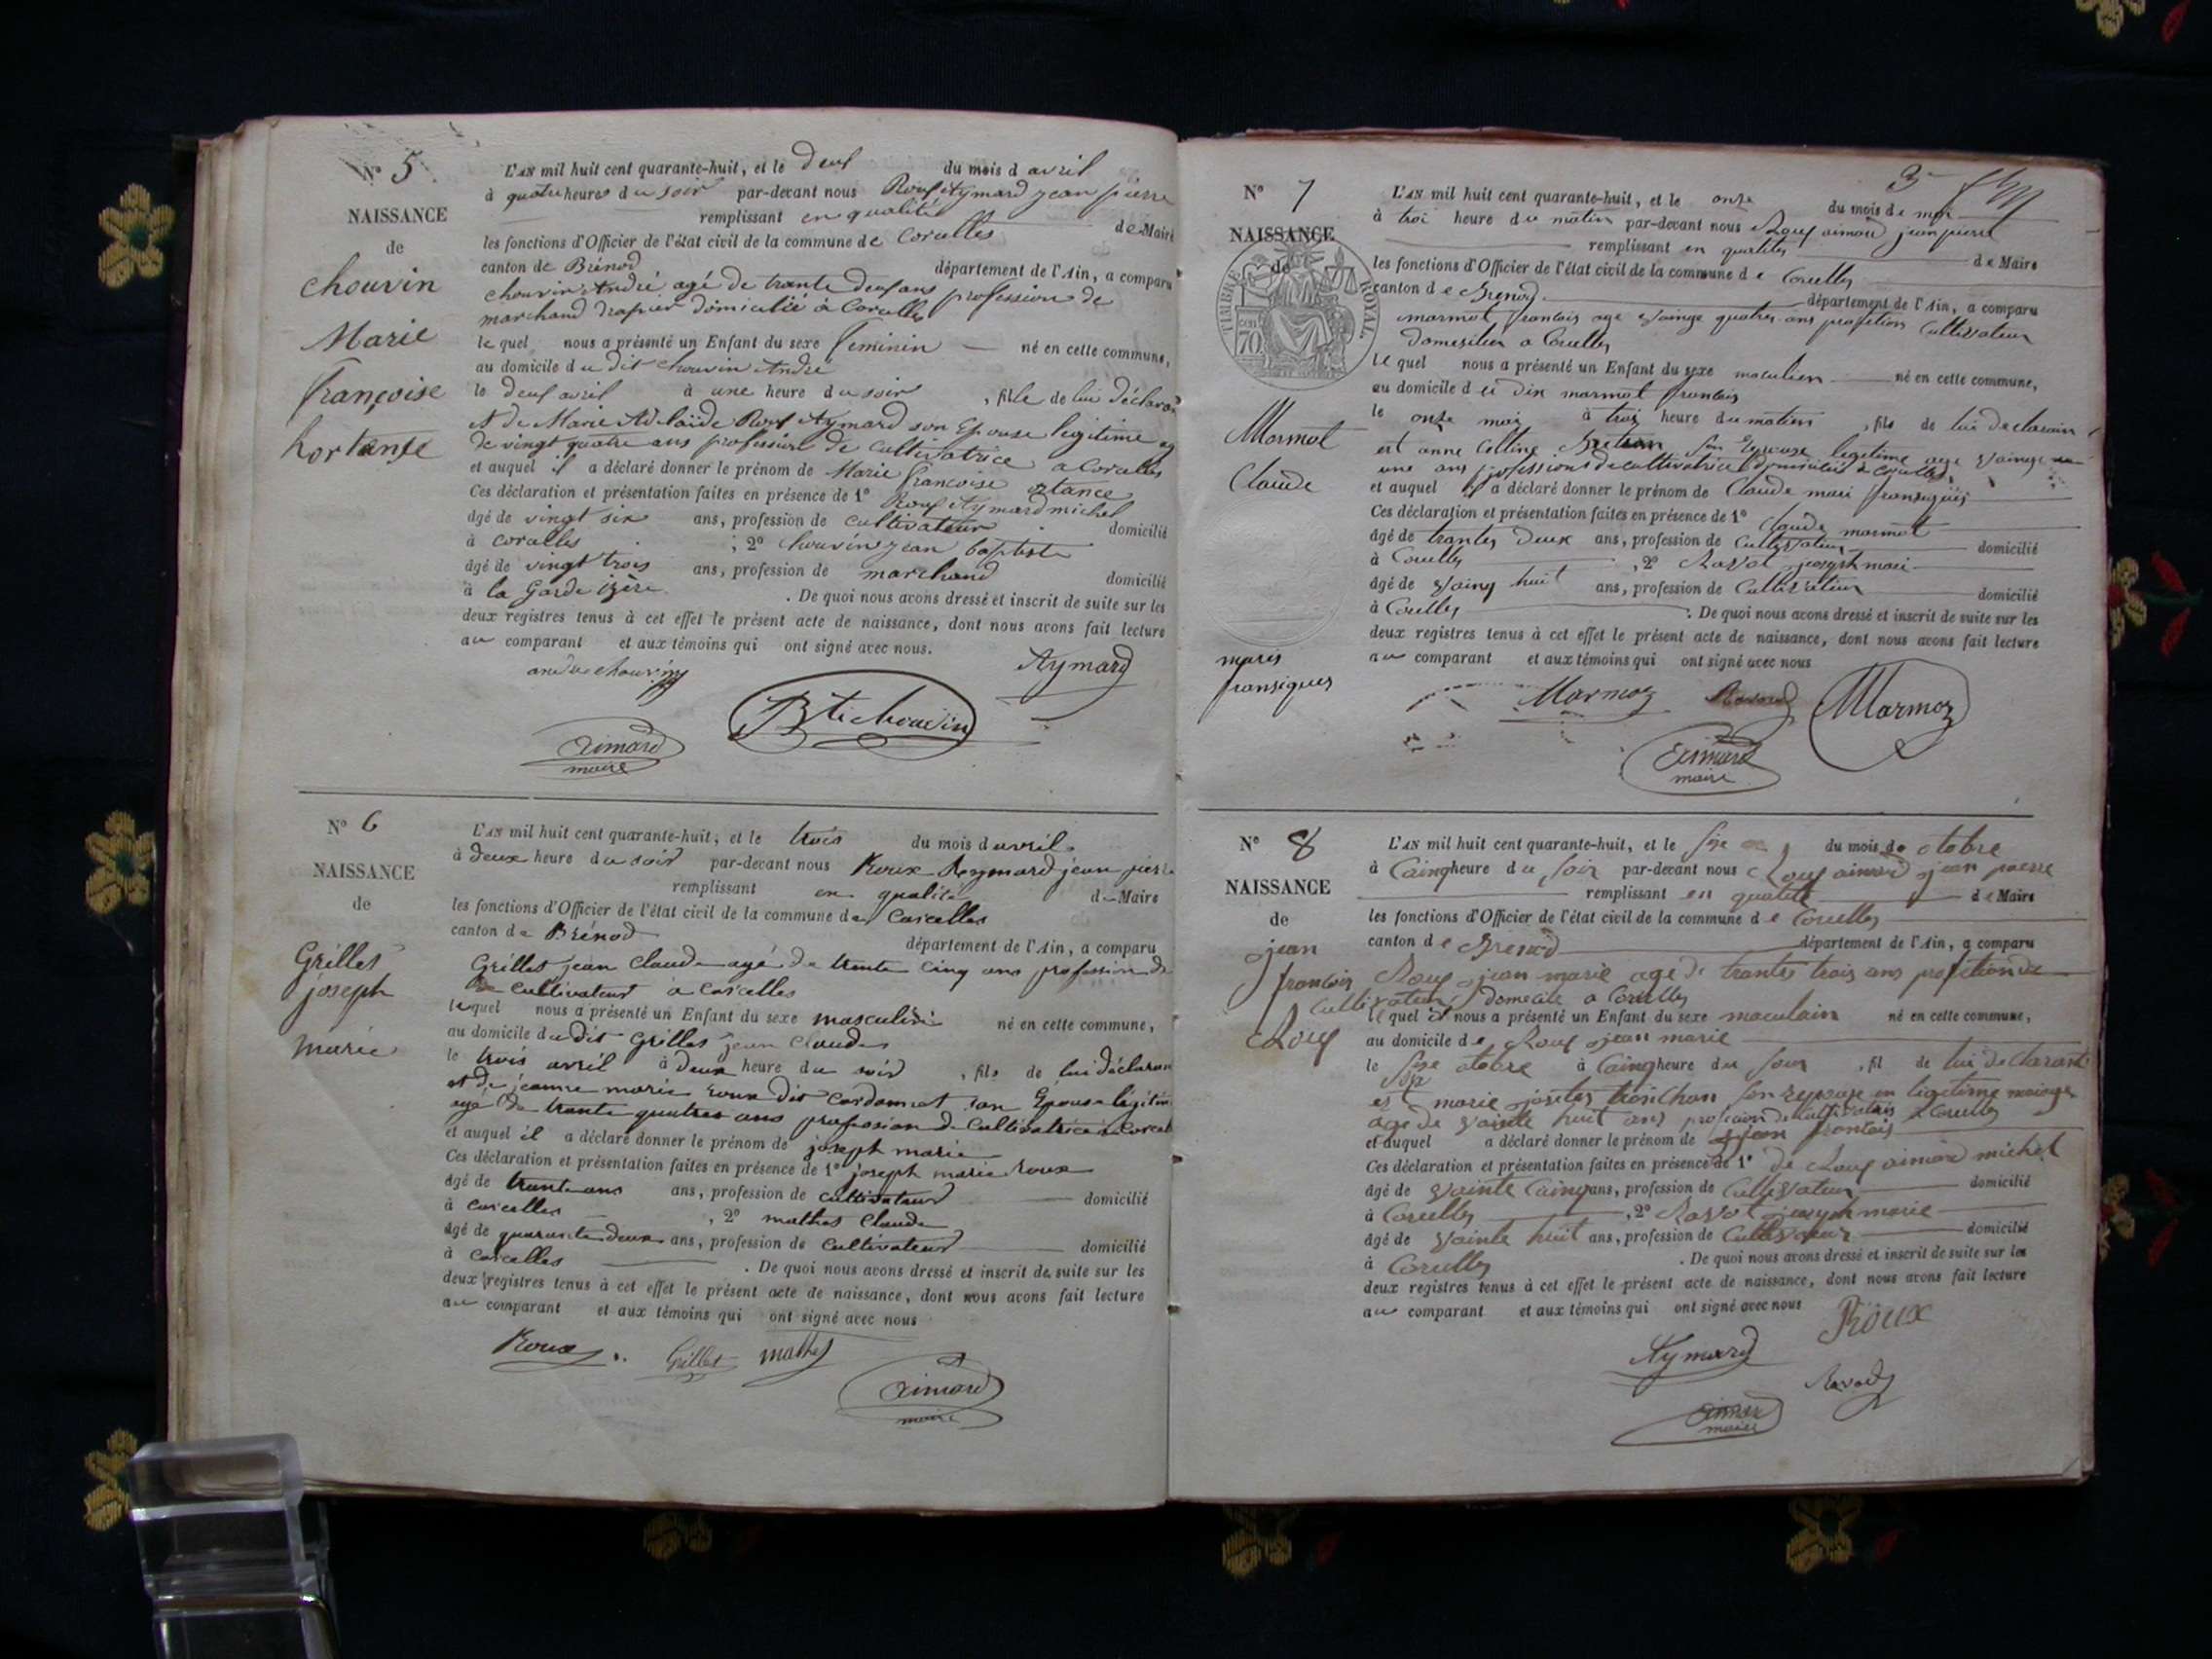 N° 5
NAISSANCE
de
chouvin
Marie
françoise
hortanse
L'AN mil huit cent quarante-huit, et le deux du mois d avril
à quatre heures du soir par-devant nous Roux Aymard jean pierre
remplissant en qualité de Maire
les fonctions d'Officier de l'état civil de la commune de Corcelles
canton de Brénod département de l'Ain, a comparu
chouvin André agé de trante deux ans profession de
marchand drapier domicilié à Corcelles
le quel nous a présenté un Enfant du sexe feminin né en cette commune,
au domicile du dit chouvin André
le deux avril à une heure du soir, fille de lui déclarant
et de Marie Adelaïde Roux Aymard son Epouse legitime ag
de vingt quatre ans profession de cultivatrice a Corcelles
et auquel il a déclaré donner le prénom de Marie françoise ortance
Ces déclaration et présentation faites en présence de 1° Roux Aymard michel
âgé de vingt six ans, profession de cultivateur domicilié
à corcelles ; 2° chouvin jean baptiste
âgé de vingt trois ans, profession de marchand domicilié
à la Garde izère. De quoi nous avons dressé et inscrit de suite sur les
deux registres tenus à cet effet le présent acte de naissance, dont nous avons fait lecture
au comparant et aux témoins qui ont signé avec nous.
andré chouvin Aymard
Bte chouvin
aimard
maire
N° 6
NAISSANCE
de
Grillet
joseph
marie
L'AN mil huit cent quarante-huit, et le trois du mois d avril
à deux heure du soir par-devant nous Roux Aeymard jean pierre
remplissant en qualité de Maire
les fonctions d'Officier de l'état civil de la commune de Corcelles
canton de Brénod département de l'Ain, a comparu
Grillet jean Claude agé de trente cinq ans profession de
de cultivateur a corcelles
lequel nous a présenté un Enfant du sexe masculin né en cette commune,
au domicile du dit Grillet jean Claude
le trois avril à deux heure du soir, fils de lui déclaran
et de jeanne marie roux dit cordonnet son Epouse légitim
agé de trente quatres ans profession de cultivatrice a Corcel
et auquel il a déclaré donner le prénom de joseph marie
Ces déclaration et présentation faites en présence de 1° joseph marie roux
âgé de trante ans ans, profession de cultivateur domicilié
à corcelles, 2° mathes Claude
âgé de quarante deux ans, profession de cultivateur domicilié
à corcelles. De quoi nous avons dressé et inscrit de suite sur les
deux registres tenus à cet effet le présent acte de naissance, dont nous avons fait lecture
au comparant et aux témoins qui ont signé avec nous
Roux Grillet mathes
aimard
maire
3
N° 7
NAISSANCE
de
TIMBRE ROYAL
70
Marmot
Claude
maris
fransiques
L'AN mil huit cent quarante-huit, et le onze du mois de mai
à troi heure du matin par-devant nous Roux aimard jean pierre
remplissant en qualites de Maire
les fonctions d'Officier de l'état civil de la commune de Corcelles
canton de Brenod département de l'Ain, a comparu
marmot francois age vainge quatres ans profetion cultivateur
domesilier a Corcelles
le quel nous a présenté un Enfant du sexe maculien né en cette commune,
au domicile d marmot francois
le onze mai à troi heure du matin, fils de lui declarain
est anne Colline Bretran son Epeouse legetime age vainge
une ans professions de cultivatrice domicilié a Corcelles
et auquel il a déclaré donner le prénom de Claude mari fransiques
Ces déclaration et présentation faites en présence de 1° Claude marmot
âgé de trantes deux ans, profession de cultivateur domicilié
à Corcelles, 2° Ravot joseph mari
âgé de vaing huit ans, profession de cultivateur domicilié
à Corcelles. De quoi nous avons dressé et inscrit de suite sur les
deux registres tenus à cet effet le présent acte de naissance, dont nous avons fait lecture
au comparant et aux témoins qui ont signé avec nous
Marmoz Ravod Marmoz
aimard
maire
N° 8
NAISSANCE
de
jean
francois
Roux
L'AN mil huit cent quarante-huit, et le du mois de otobre
à Cainq heure du soir par-devant nous Roux aimard jean pierre
remplissant en qualité de Maire
les fonctions d'Officier de l'état civil de la commune de Corcelles
canton de Brenod département de l'Ain, a comparu
Roux jean marie age de trantes trois ans profetion de
cultivateur domecile a Corcelles
le quel il nous a présenté un Enfant du sexe maculain né en cette commune,
au domicile de Roux jean marie
le otobre à Cainq heure du soir, fil de lui declarant
est marie josetes tronchon son epeouse en legetime mariage
age de vainte huit ans profecion de cultivatris a Corcelles
et auquel a déclaré donner le prénom de jean francois
Ces déclaration et présentation faites en présence de 1° de Roux aimard michel
âgé de vainte Cainq ans, profession de Cultivateur domicilié
à Corcelles, 2° Ravot joseph marie
âgé de vainte huit ans, profession de Cultivateur domicilié
à Corcelles. De quoi nous avons dressé et inscrit de suite sur les
deux registres tenus à cet effet le présent acte de naissance, dont nous avons fait lecture
au comparant et aux témoins qui ont signé avec nous
Roux
Aymard
Ravod
aimard
maire